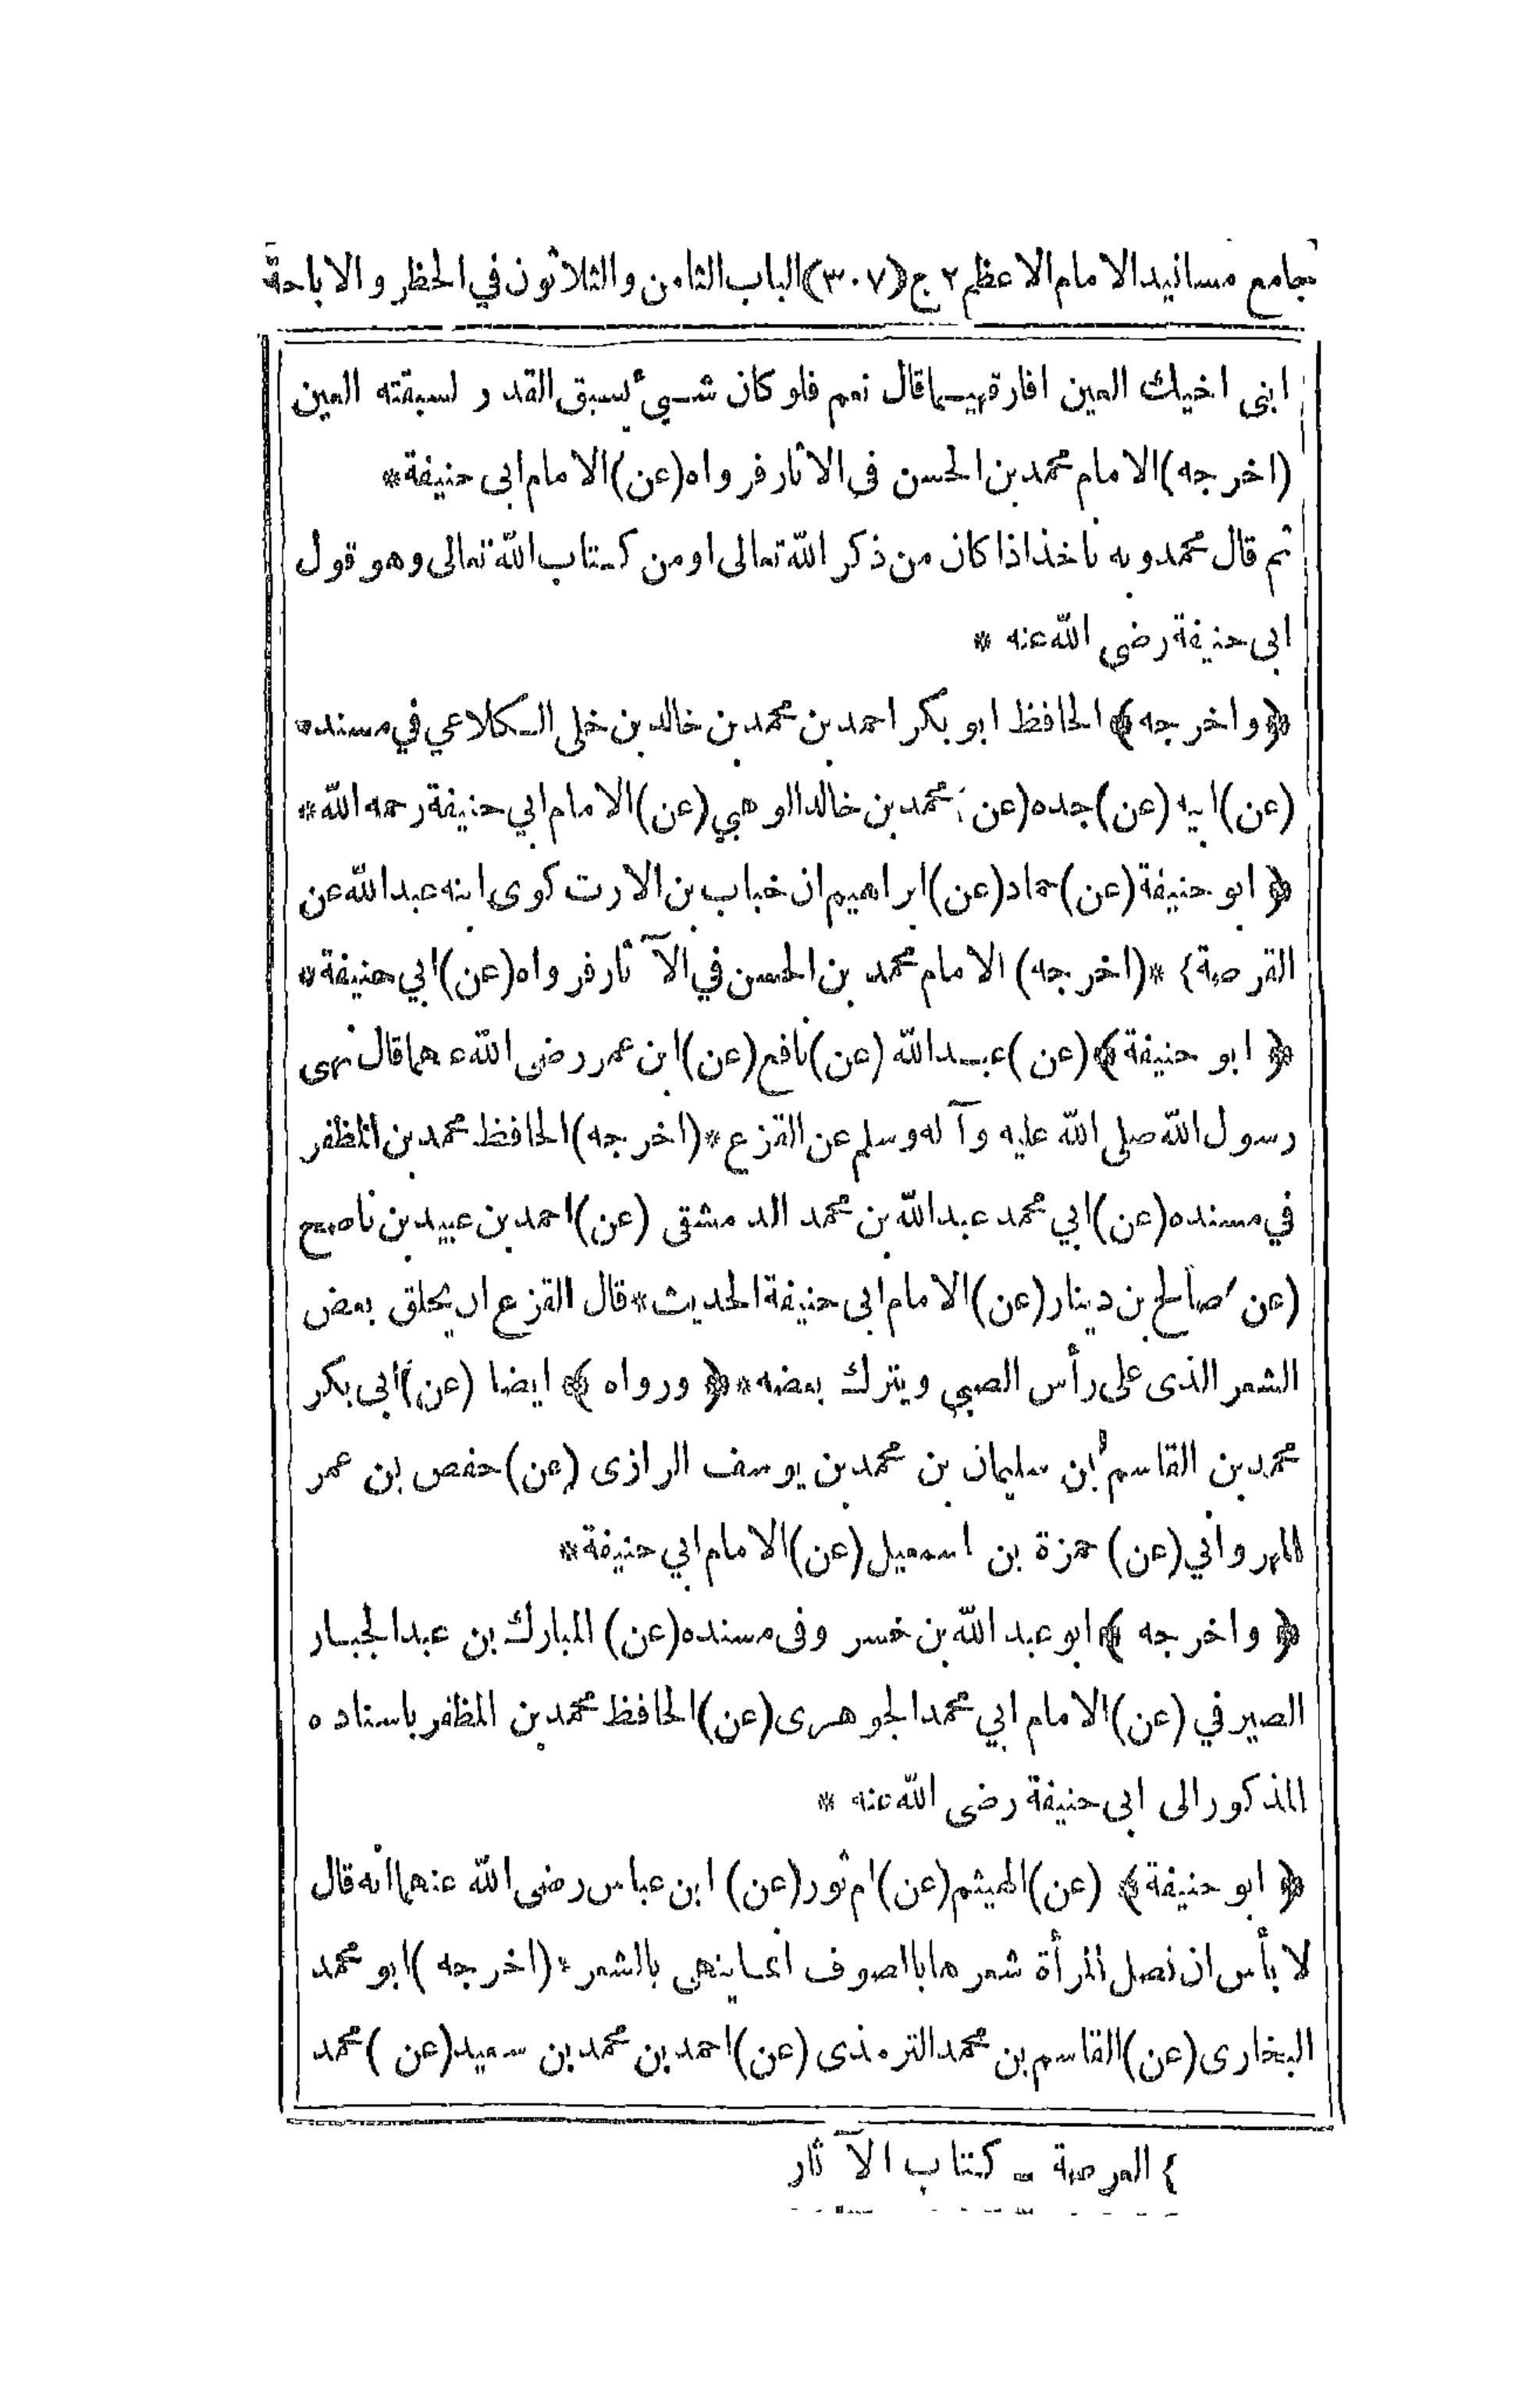 جامع مسانيد الامام الاعظم ٢ ج (٣٠٧) الباب الثامن والثلاثون في الحظر والاباحة
ابنى اخيك العين افارقيهما قال نعم فلو كان شيئ يسبق القدر لسبقته العين
(اخرجه) الامام محمد بن الحسن فى الاثار فرواه (عن) الامام ابى حنيفة *
ثم قال محمد وبه ناخذ اذا كان من ذكر الله تعالى او من كتاب الله تعالى وهو قول
ابى حنيفة رضى الله عنه *
﴿واخرجه﴾ الحافظ ابو بكر احمد بن محمد بن خالد بن خلى الكلاعي في مسنده
(عن) ابيه (عن) جده (عن) محمد بن خالد الوهبي (عن) الامام ابي حنيفة رحمه الله *
﴿ ابو حنيفة (عن) حماد (عن) ابراهيم ان خباب بن الارت كوى ابنه عبد الله عن
القرصة} * (اخرجه) الامام محمد بن الحسن في الآثار فرواه (عن) ابي حنيفة *
﴿ ابو حنيفة﴾ (عن) عبد الله (عن) نافع (عن) ابن عمر رضى الله عنهما قال نهى
رسول الله صلى الله عليه وآله وسلم عن القزع * (اخرجه) الحافظ محمد بن المظفر
في مسنده (عن) ابي محمد عبد الله بن محمد الدمشقى (عن) احمد بن عبيد بن ناصح
(عن) صالح بن دينار (عن) الامام ابى حنيفة الحديث * قال القزع ان يحلق بعض
الشعر الذى على رأس الصبي ويترك بعضه * ﴿ ورواه ﴾ ايضا (عن) ابي بكر
محمد بن القاسم بن سليمان بن محمد بن يوسف الرازى (عن) حفص بن عمر
المهرواني (عن) حمزة بن اسمعيل (عن) الامام ابي حنيفة *
﴿ واخرجه ﴾ ابو عبد الله بن خسر وفى مسنده (عن) المبارك بن عبد الجبار
الصيرفي (عن) الامام ابي محمد الجوهرى (عن) الحافظ محمد بن المظفر باسناده
المذكور الى ابى حنيفة رضى الله عنه *
﴿ ابو حنيفة﴾ (عن) الهيثم (عن) ام ثور (عن) ابن عباس رضى الله عنهما انه قال
لا بأس ان تصل المرأة شعرها بالصوف انما ينهى بالشعر * (اخرجه) ابو محمد
البخارى (عن) القاسم بن محمد الترمذى (عن) احمد بن محمد بن سعيد (عن) محمد
} العرصة - كتاب الآثار